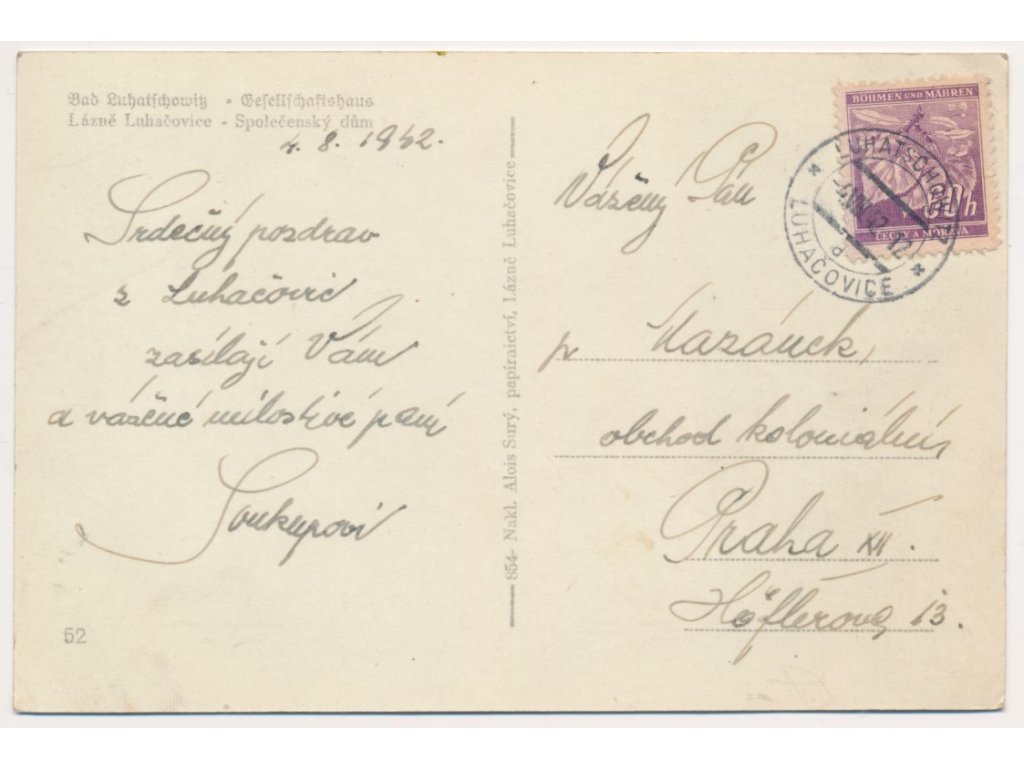 Bad Luhatschowitz - Gesellschaftshaus
Lázně Luhačovice - Společenský dům
4. 8. 1942.
Srdečný pozdrav
z Luhačovic
zasílají Vám
a vážené milostivé paní
Soukupovi
52
854- Nakl. Alois Surý, papírnictví, Lázně Luhačovice
BÖHMEN UND MÄHREN
60h
ČECHY A MORAVA
LUHATSCHOWITZ
LUHAČOVICE
-4.VIII.42-12
a
Vážený Pán
p Mazánek,
obchod koloniální
Praha XII.
Höflerova 13.